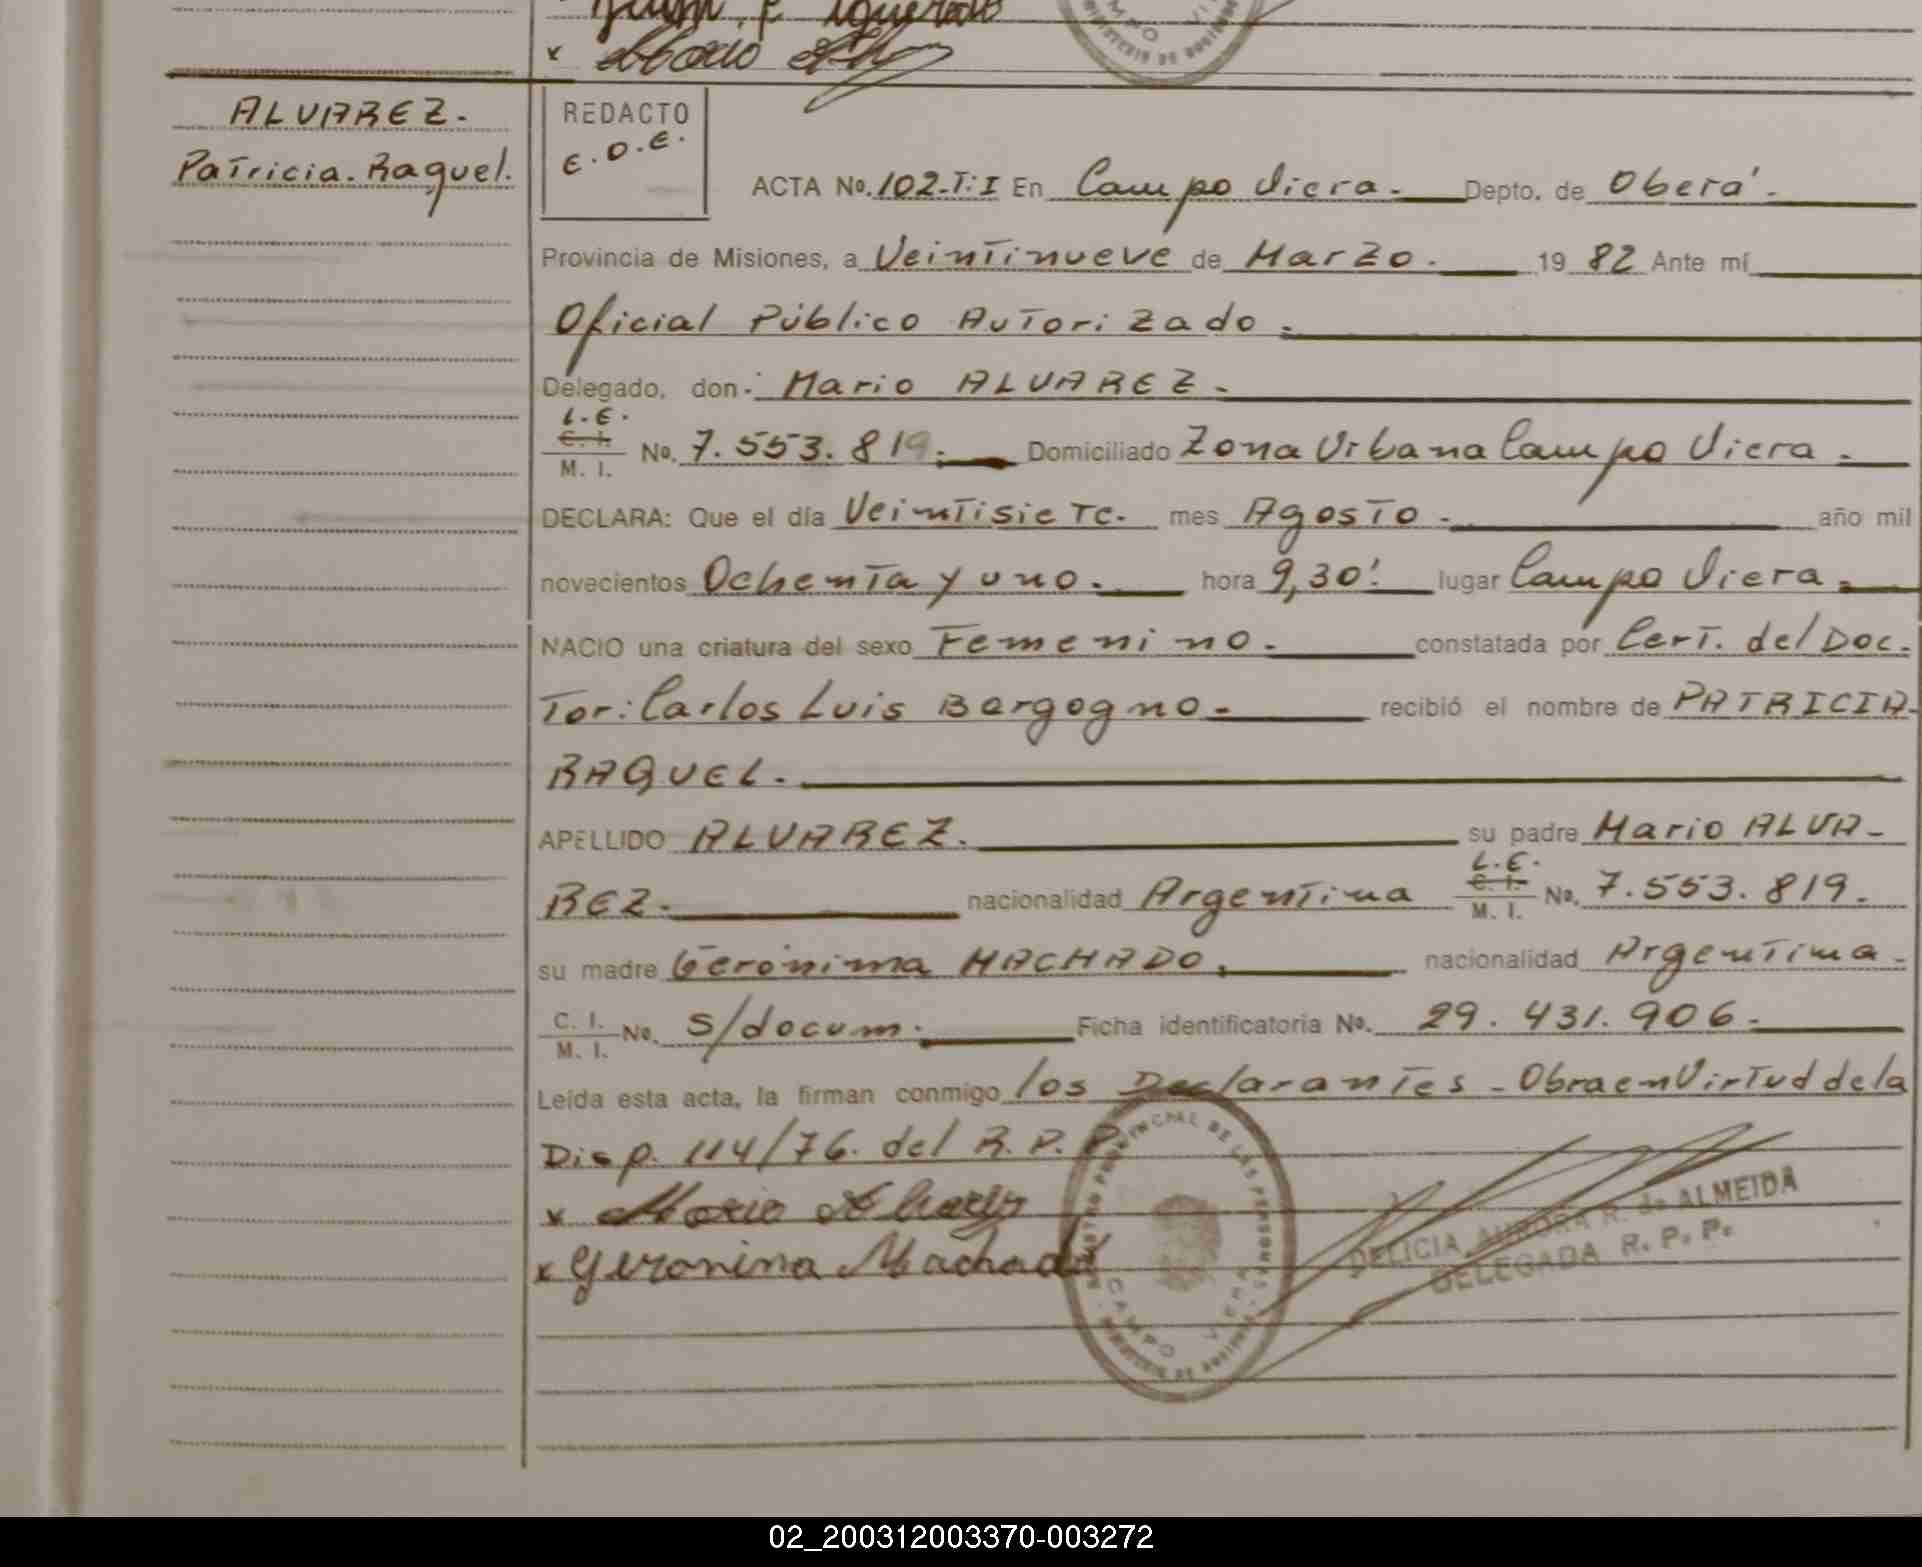 ALVAREZ.
Patricia. Raquel.
REDACTO
E.O.E.
ACTA No. 102-T:I En Campo Viera. Depto. de Oberá.
Provincia de Misiones, a Veintinueve de Marzo. 19 82 Ante mí
Oficial Público Autorizado.
Delegado, don: Mario ALVAREZ.
L.E.
C. I.
M. I. No. 7.553.819. Domiciliado Zona Urbana Campo Viera.
DECLARA: Que el día Veintisiete. mes Agosto. año mil
novecientos Ochenta y uno. hora 9,30'. lugar Campo Viera.
NACIO una criatura del sexo Femenino. constatada por Cert. del Doc.
Tor: Carlos Luis Borgogno. recibió el nombre de PATRICIA-
RAQUEL.
APELLIDO ALVAREZ. su padre Mario ALVA-
REZ. nacionalidad Argentina L.E. C. I. M. I. No. 7.553.819.
su madre Gerónima MACHADO. nacionalidad Argentina.
C. I. M. I. No. S/docum. Ficha identificatoria No. 29.431.906.
Leída esta acta, la firman conmigo los Declarantes - Obra en Virtud de la
Disp. 114/76. del R. P. P.
x Mario Alvarez
x Geronima Machado
REGISTRO PROVINCIAL DE LAS PERSONAS
CAMPO VIERA
MINISTERIO DE GOBIERNO
DELICIA AURORA R. de ALMEIDA
DELEGADA R. P. P.
02_200312003370-003272